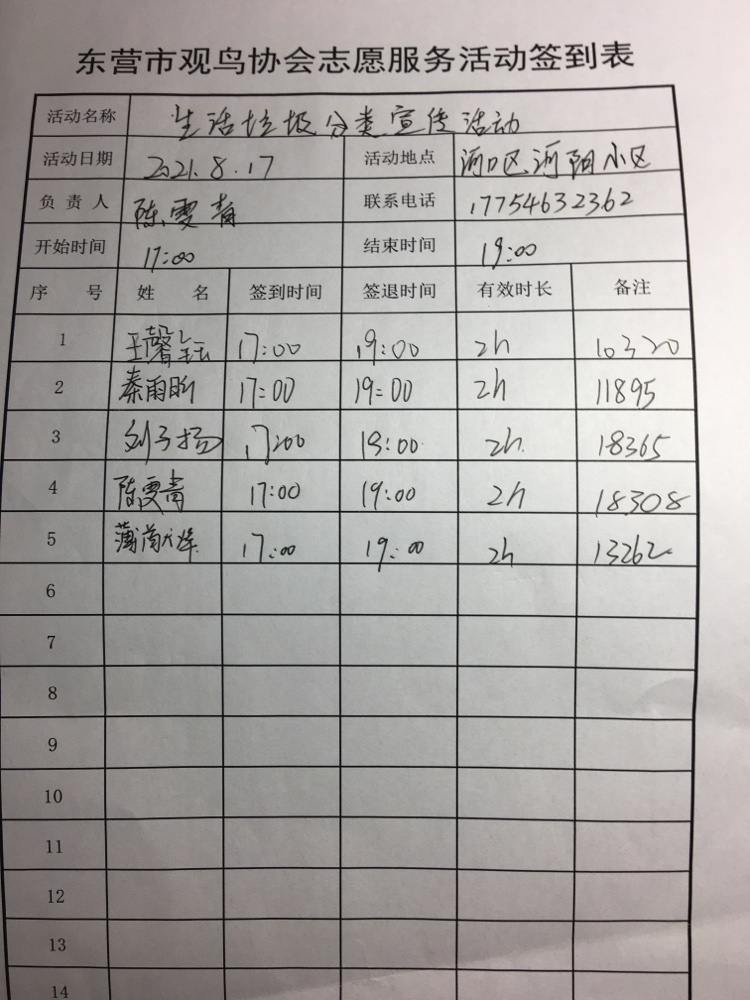 东营市观鸟协会志愿服务活动签到表
活动名称 生活垃圾分类宣传活动
活动日期 2021.8.17 活动地点 河口区河阳小区
负责人 陈雯青 联系电话 17754632362
开始时间 17:00 结束时间 19:00
序号 姓名 签到时间 签退时间 有效时长 备注
1 王馨钰 17:00 19:00 2h 10320
2 秦雨昕 17:00 19:00 2h 11895
3 刘子扬 17:00 19:00 2h 18365
4 陈雯青 17:00 19:00 2h 18308
5 17:00 19:00 2h 13262
6
7
8
9
10
11
12
13
14